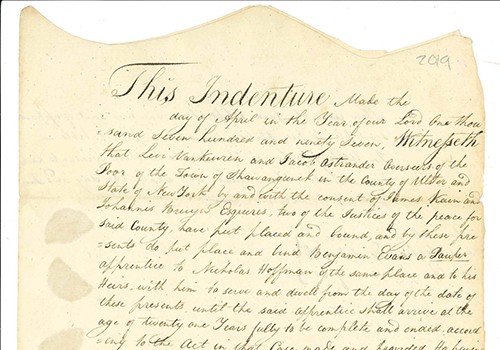 2019
This Indenture Made the
day of April in the Year of our Lord One thou
=sand Seven hundred and ninety Seven, Witnesseth
that Levi Vankeuren and Jacob Ostrander Overseers of the
Poor of the Town of Shawangunck in the County of Ulster and
State of New York by and with the consent of James Kain and
Johannis Bruyn Esquires, two of the Justices of the peace for
said County, have put placed and bound, and by these pre
=sents do put place and bind Benjamen Evans a Pauper
apprentice to Nicholas Hoffman of the same place and to his
Heirs, with him to serve and dwell from the day of the date of
these presents, until the said aprentice shall arrive at the
age of twenty one Years fully to be complete and ended. accord
=ing to the Act in that Case made and provided